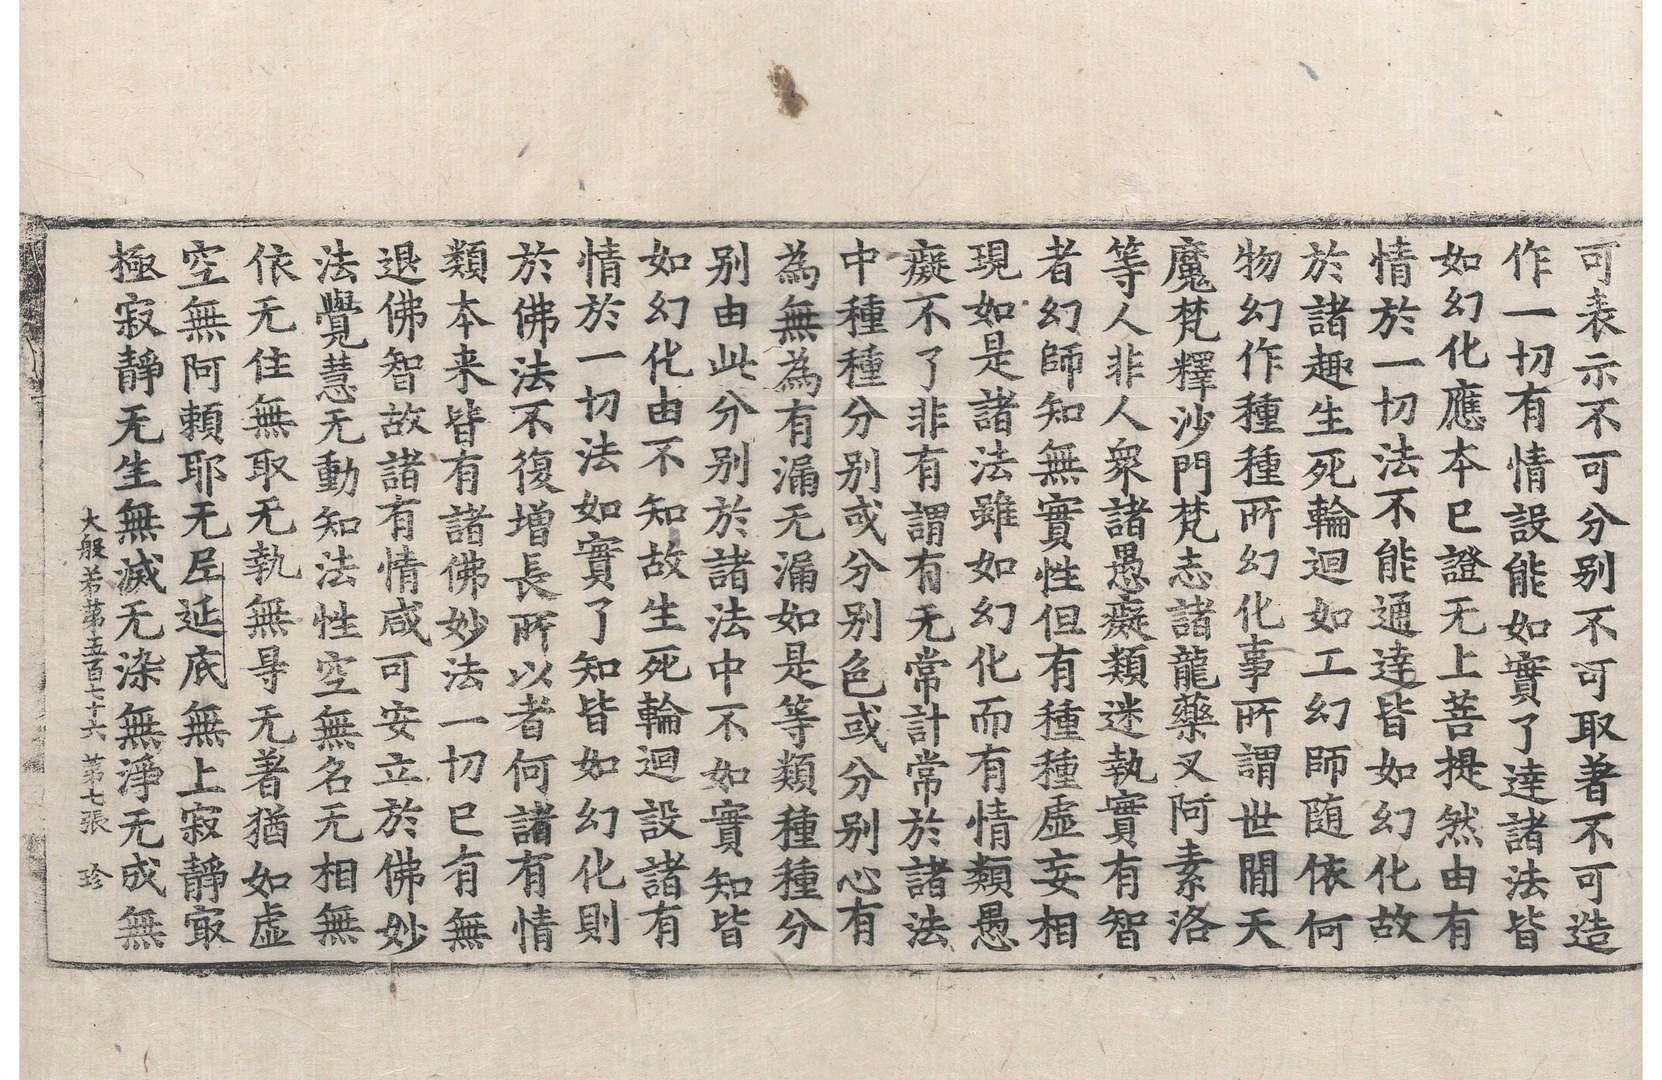 可表示不可分别不可取著不可造
作一切有情設能如實了達諸法皆
如幻化應本已證无上菩提然由有
情於一切法不能通達皆如幻化故
於諸趣生死輪迴如工幻師随依何
物幻作種種所幻化事所謂世間天
魔梵釋沙門梵志諸龍藥叉阿素洛
等人非人衆諸愚癡類迷執實有智
者幻師知無實性但有種種虛妄相
現如是諸法雖如幻化而有情類愚
癡不了非有謂有无常計常於諸法
中種種分别或分别色或分别心有
為無為有漏无漏如是等類種種分
别由此分别於諸法中不如實知皆
如幻化由不知故生死輪迴設諸有
情於一切法如實了知皆如幻化則
於佛法不復增長所以者何諸有情
類本来皆有諸佛妙法一切已有無
退佛智故諸有情咸可安立於佛妙
法覺慧无動知法性空無名无相無
依无住無取无執無㝵无著猶如虛
空無阿頼耶无尼延底無上寂靜㝡
極寂靜无生無滅无染無淨无成無
大般弟第五百七十六 第七張 珍